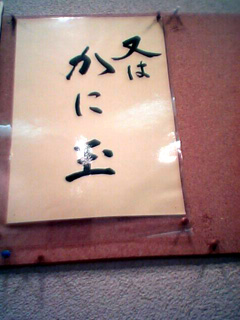 又は
かに玉